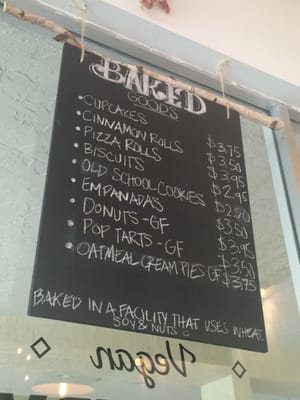 BAKED
GOODS
• CUPCAKES $3.75
• CINNAMON ROLLS $3.50
• PIZZA ROLLS $3.95
• BISCUITS $2.95
• OLD SCHOOL COOKIES
• EMPANADAS $3.50
• DONUTS - GF $3.95
• POP TARTS - GF $3.50
• OATMEAL CREAM PIES GF $3.75
BAKED IN A FACILITY THAT USES WHEAT,
SOY & NUTS
Vegan